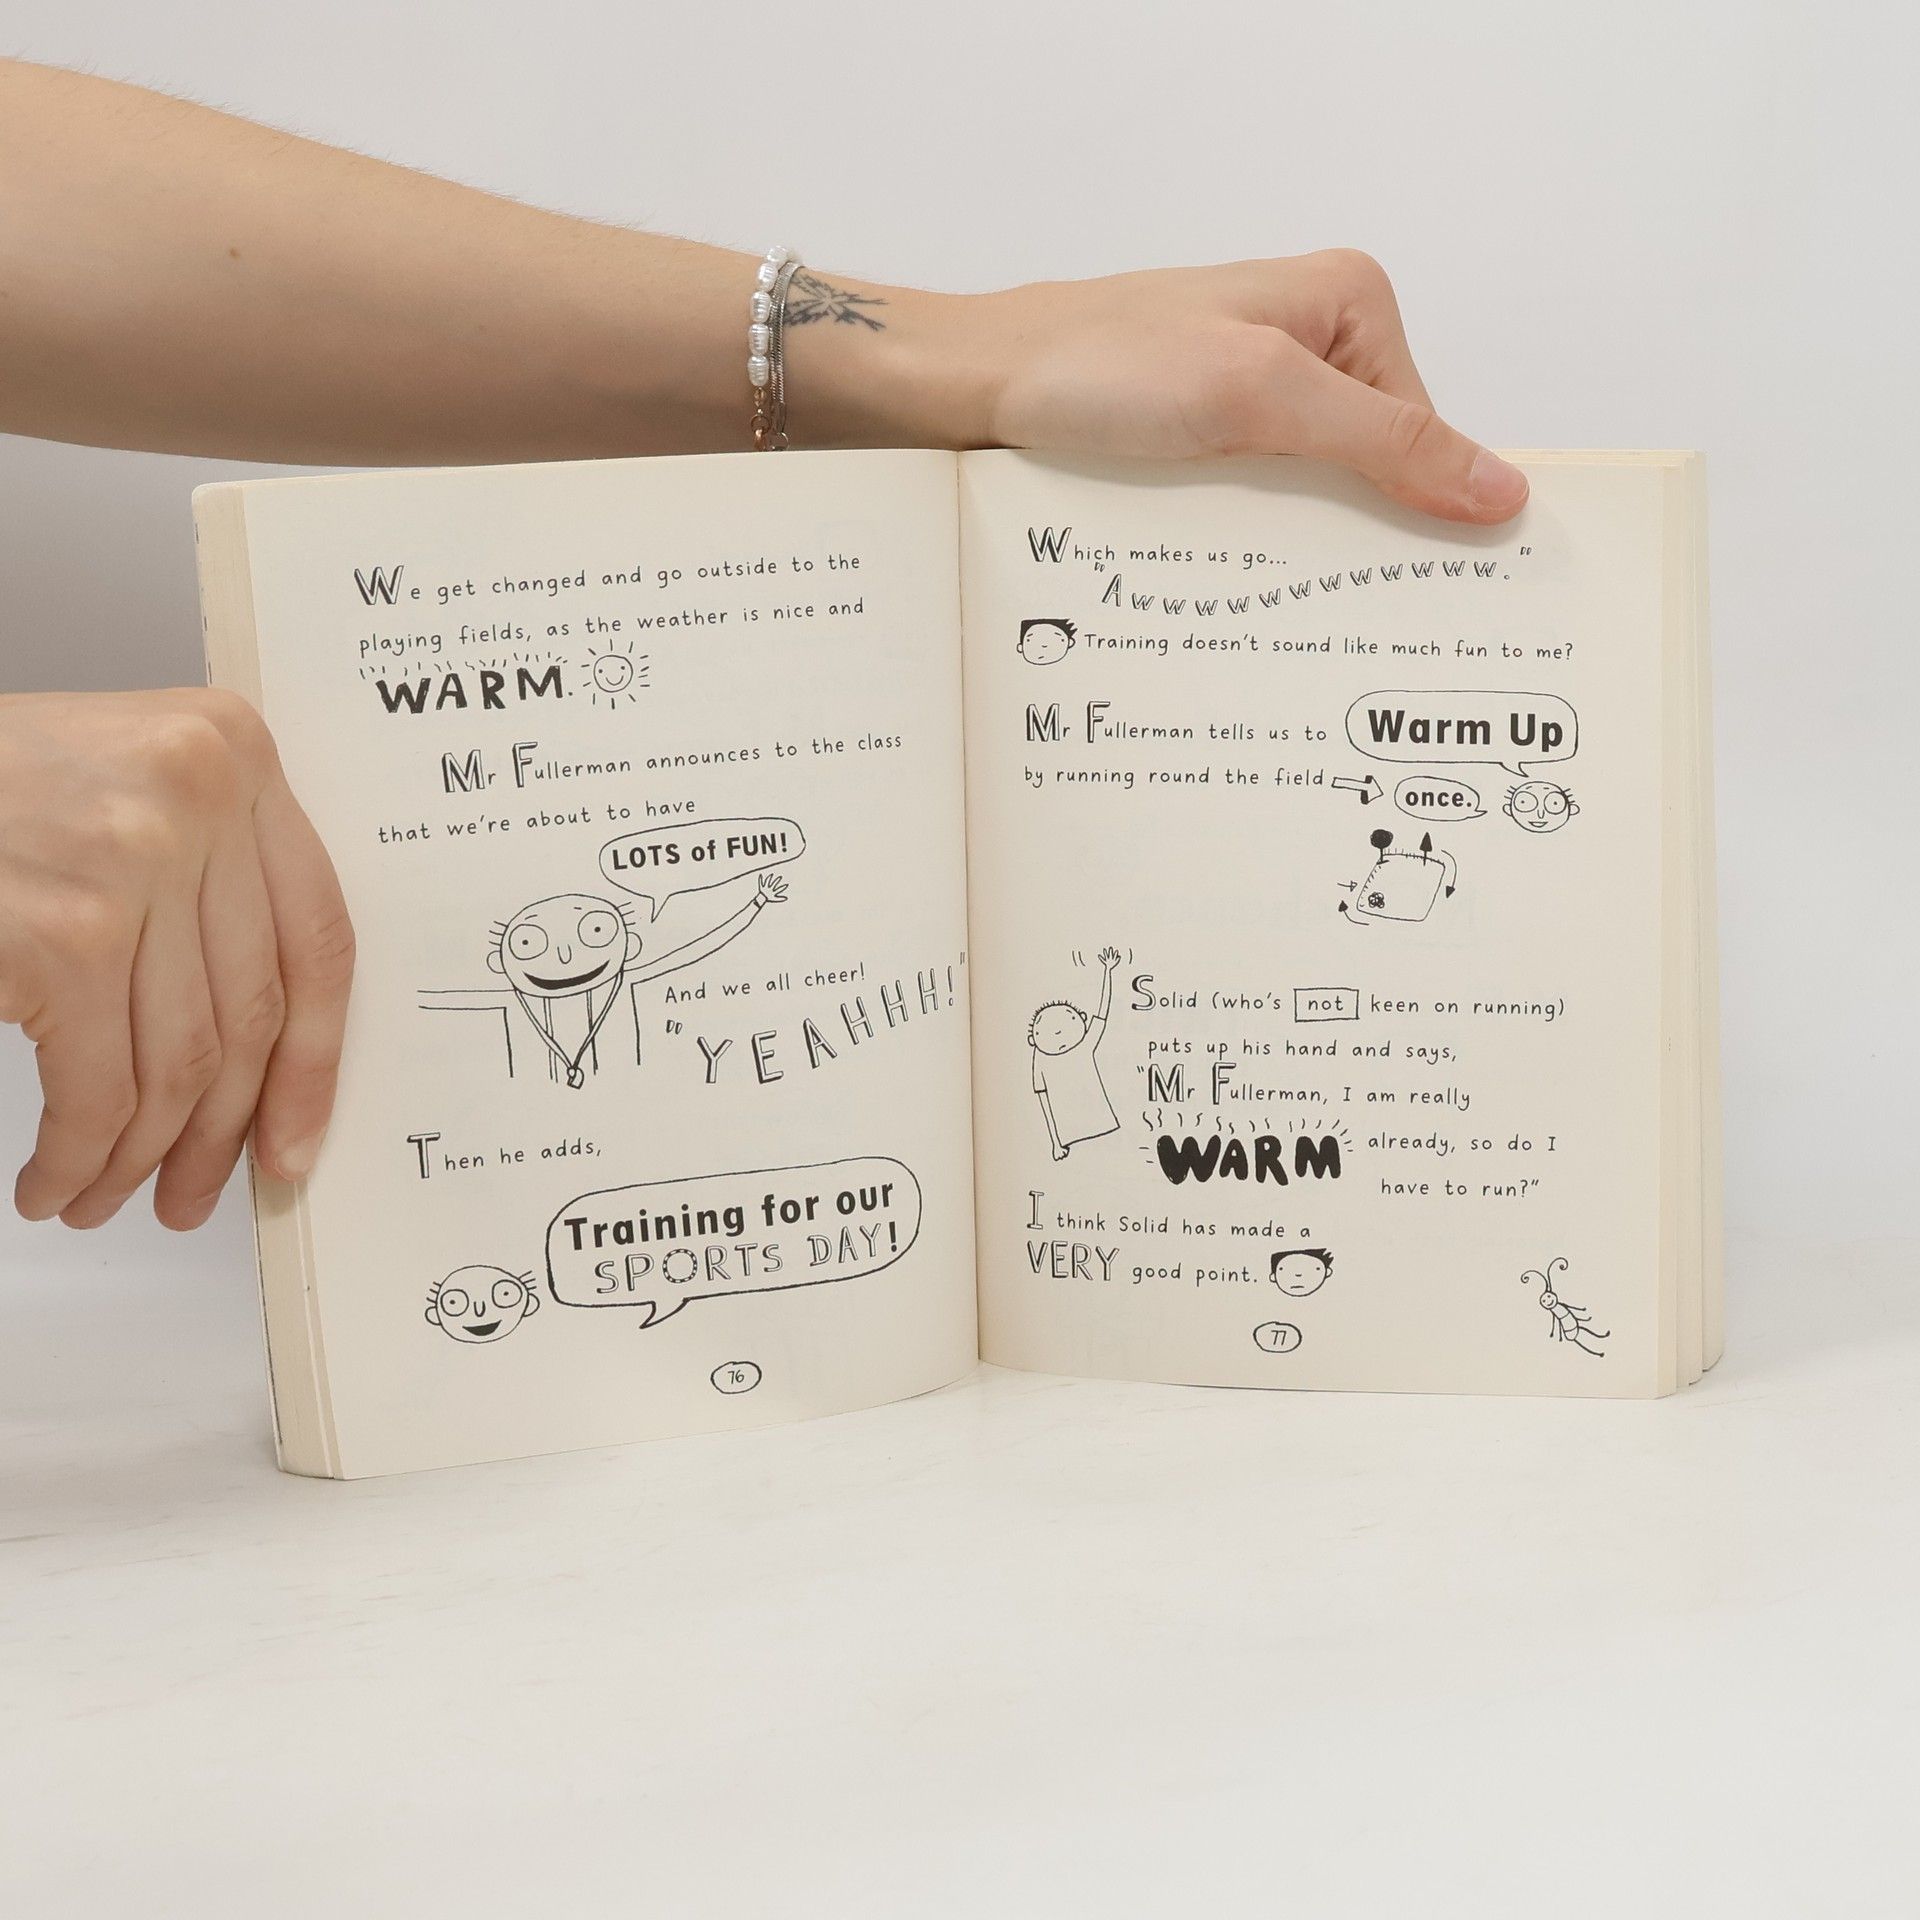 We get changed and go outside to the
playing fields, as the weather is nice and
WARM.
Mr Fullerman announces to the class
that we're about to have
LOTS of FUN!
And we all cheer!
"YEAHHH!"
Then he adds,
Training for our
SPORTS DAY!
76
Which makes us go...
"Awwwwwwwwwwww."
Training doesn't sound like much fun to me?
Mr Fullerman tells us to Warm Up
by running round the field once.
Solid (who's not keen on running)
puts up his hand and says,
"Mr Fullerman, I am really
WARM already, so do I
have to run?"
I think Solid has made a
VERY good point.
77